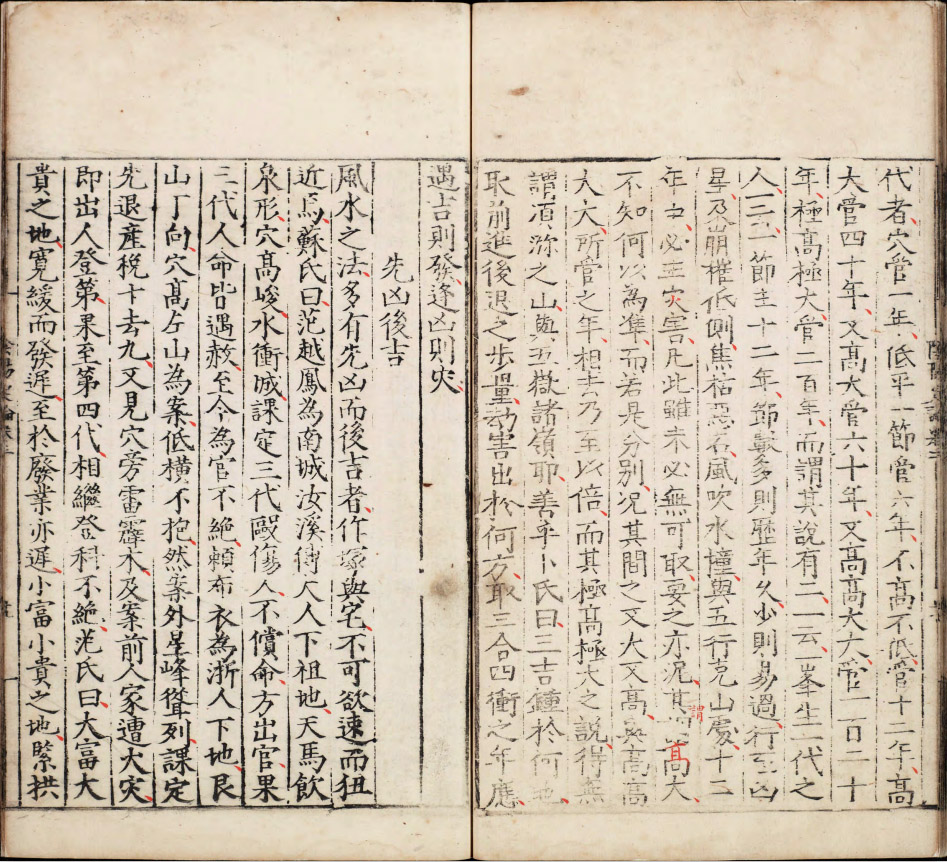 代者穴管一年低平一節管六年不高不低管十二年高
大管四十年又高大管六十年又高高大大管一百二十
年極高極大管二百年而謂其說有二一云一峯生一代之
人一云一節主十二年節數多則歷年久少則易過行至凶
星乃崩摧低側焦枯惡石風吹水撞與五行克山處十二
年中必主灾害凡此雖未必無可取要之亦泥其謂高大
不知何以為準而若是分別况其間之又大又高與高高
大大所管之年相去乃至以倍而其極高極大之說得無
謂須弥之山與五嶽諸嶺耶善乎卜氏曰三吉鍾於何地
取前進後退之步量劫害出於何方取三合四衝之年應
遇吉則發逢凶則灾
先凶後吉
風水之法多有先凶而後吉者作塚與宅不可欲速而狃
近焉蘇氏曰范越鳳為南城汝溪傅大人下祖地天馬飲
泉形穴高峻水衝城課定三代毆傷人不償命方出官果
三代人命皆遇赦至今為官不絶賴布衣為浙人下地艮
山丁向穴髙左山為案低横不抱然案外星峰聳列課定
先退産稅十去九又見穴旁雷霹木及案前人家遭大灾
即出人登第果至第四代相繼登科不絶范氏曰大富大
貴之地寛緩而發遲至於廢業亦遲小富小貴之地緊拱